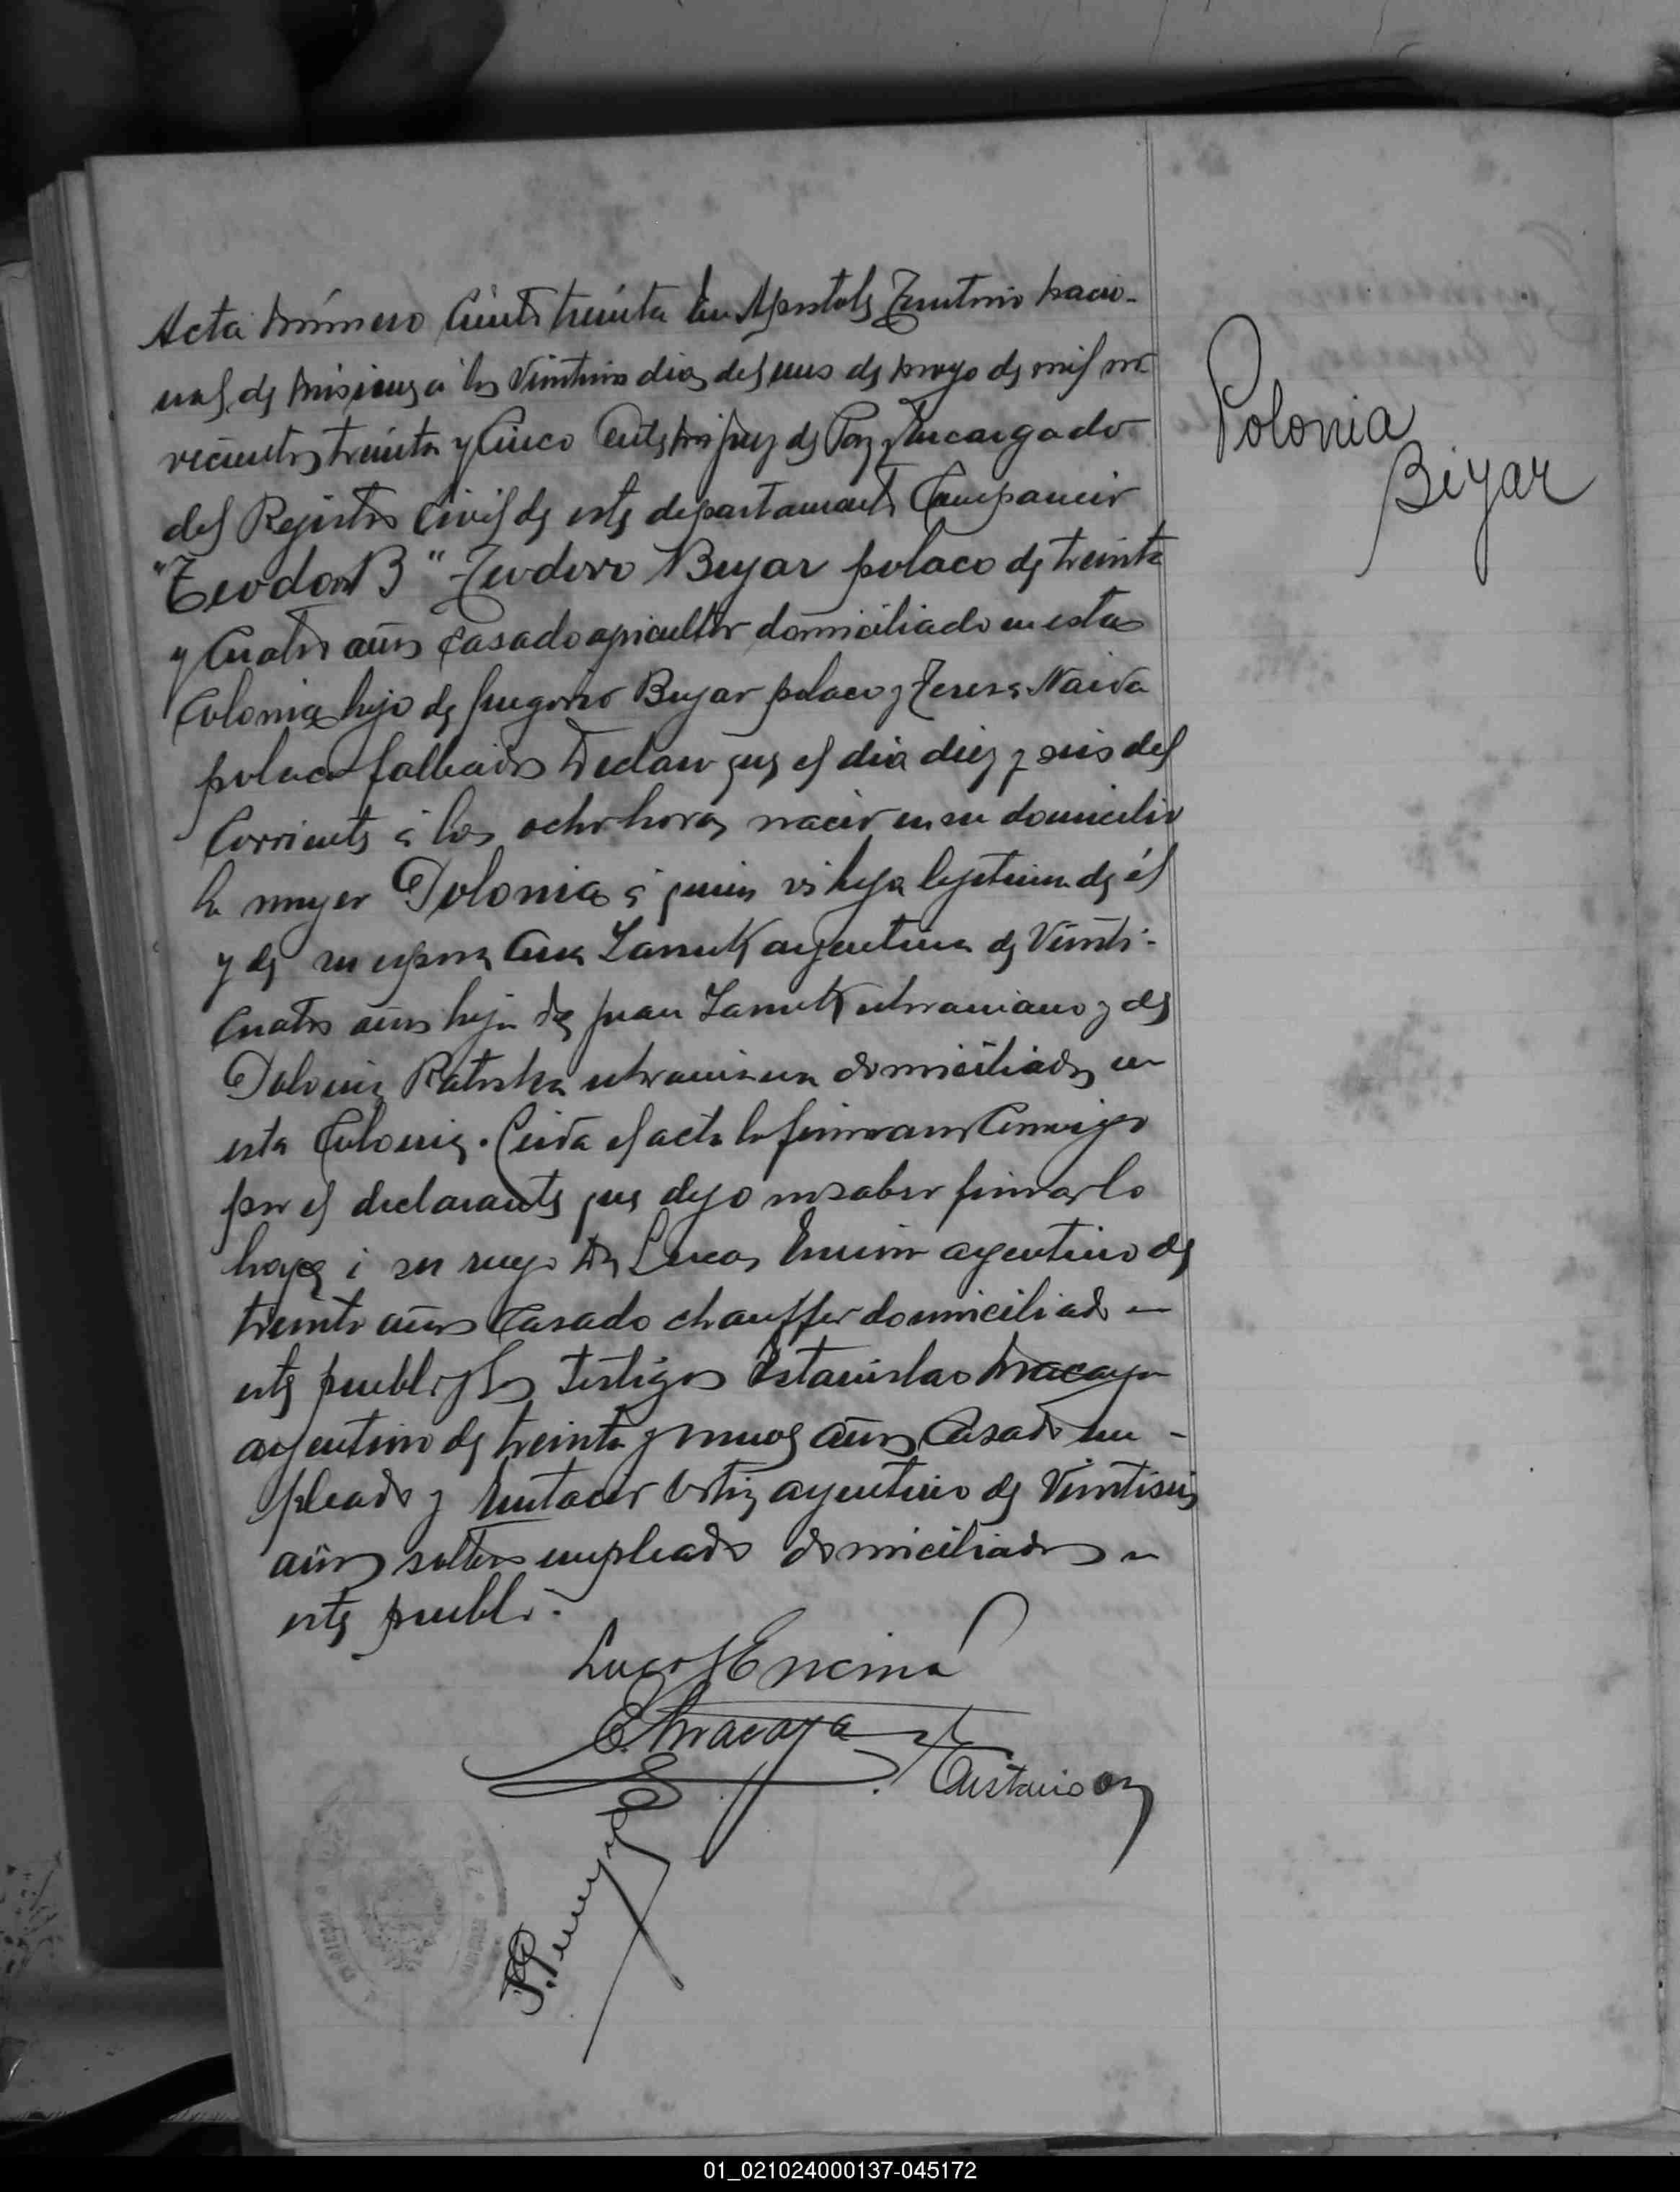 Acta número Ciento treinta En Apostoles Territorio nacio-
nal de Misiones a los Veintiun dias del mes de mayo de mil no
vecientos treinta y Cinco Ante mi Juez de Paz y Encargado
del Registro Civil de este departamento Comparecio
"Teodor B" Teodoro Beyar polaco de treinta
y Cuatro años Casado agricultor domiciliado en esta
Colonia hijo de Gregorio Beyar polaco y Teresa Naida
polaca fallecidos Declaro que el dia diez y seis del
Corriente a las ocho horas nacio en su domicilio
la mujer Polonia a quien es hija legitima de él
y de su esposa Ana argentina de Veinti-
Cuatro años hija de Juan ukraniano y de
Polonia ukraniana domiciliados en
esta Colonia. Leida el acta la firmaron Conmigo
por el declarante que dijo no saber firmar lo
hace a su ruego Dn Lucas Encina argentino de
treinta años Casado chauffer domiciliado en
este pueblo y los testigos Estanislao
argentino de treinta y nueve años Casado em-
pleado y Eustacio Ortiz argentino de Veintiseis
años soltero empleado domiciliados en
este pueblo.
Lucas Encina
Polonia
Beyar
01_021024000137-045172